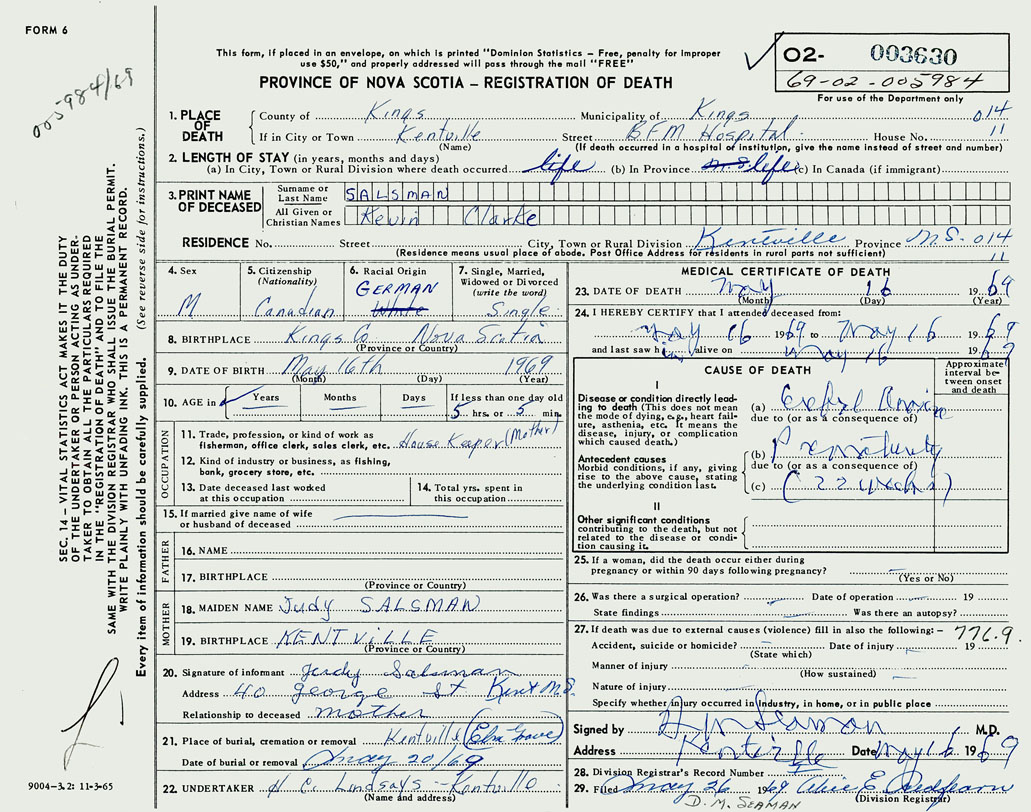 FORM 6
This form, if placed in an envelope, on which is printed "Dominion Statistics – Free, penalty for improper
use $50," and properly addressed will pass through the mail "FREE"
PROVINCE OF NOVA SCOTIA – REGISTRATION OF DEATH
02- 003630
69-02-005984
For use of the Department only
005984/69
SEC. 14 – VITAL STATISTICS ACT MAKES IT THE DUTY
OF THE UNDERTAKER OR PERSON ACTING AS UNDER-
TAKER TO OBTAIN ALL THE PARTICULARS REQUIRED
IN THE "REGISTRATION OF DEATH" AND TO FILE THE
SAME WITH THE DIVISION REGISTRAR WHO SHALL ISSUE THE BURIAL PERMIT.
WRITE PLAINLY WITH UNFADING INK. THIS IS A PERMANENT RECORD.
Every item of information should be carefully supplied. (See reverse side for instructions.)
1. PLACE OF DEATH
County of Kings Municipality of Kings 014
If in City or Town Kentville Street BFM Hospital House No. 11
(Name) (If death occurred in a hospital or institution, give the name instead of street and number)
2. LENGTH OF STAY (in years, months and days)
(a) In City, Town or Rural Division where death occurred life (b) In Province life (c) In Canada (if immigrant)
3. PRINT NAME OF DECEASED
Surname or Last Name SALSMAN
All Given or Christian Names Kevin Clarke
RESIDENCE No. Street City, Town or Rural Division Kentville Province N.S. 014
(Residence means usual place of abode. Post Office Address for residents in rural parts not sufficient) 11
4. Sex M
5. Citizenship (Nationality) Canadian
6. Racial Origin GERMAN White
7. Single, Married, Widowed or Divorced (write the word) Single
8. BIRTHPLACE Kings Co Nova Scotia
(Province or Country)
9. DATE OF BIRTH May 16th 1969
(Month) (Day) (Year)
10. AGE in Years Months Days If less than one day old
5 hrs. or 5 min.
OCCUPATION
11. Trade, profession, or kind of work as
fisherman, office clerk, sales clerk, etc. House Keeper (Mother)
12. Kind of industry or business, as fishing,
bank, grocery store, etc.
13. Date deceased last worked
at this occupation
14. Total yrs. spent in
this occupation
15. If married give name of wife
or husband of deceased
FATHER
16. NAME
17. BIRTHPLACE
(Province or Country)
MOTHER
18. MAIDEN NAME Judy SALSMAN
19. BIRTHPLACE KENTVILLE
(Province or Country)
20. Signature of informant Judy Salsman
Address 40 George St Kent N.S.
Relationship to deceased mother
21. Place of burial, cremation or removal Kentville (Elm Grove)
Date of burial or removal May 20/69
22. UNDERTAKER H C. Lindsays - Kentville
(Name and address)
9004-3.2: 11-3-65
MEDICAL CERTIFICATE OF DEATH
23. DATE OF DEATH May 16 1969
(Month) (Day) (Year)
24. I HEREBY CERTIFY that I attended deceased from:
May 16 1969 to May 16 1969
and last saw him alive on May 16 1969
CAUSE OF DEATH
Approximate interval between onset and death
I
Disease or condition directly leading to death (This does not mean the mode of dying, e.g., heart failure, asthenia, etc. It means the disease, injury, or complication which caused death.)
(a)
due to (or as a consequence of)
Antecedent causes
Morbid conditions, if any, giving rise to the above cause, stating the underlying condition last.
(b) Prematurity
due to (or as a consequence of)
(c) (22 weeks)
II
Other significant conditions
contributing to the death, but not related to the disease or condition causing it.
25. If a woman, did the death occur either during
pregnancy or within 90 days following pregnancy?
(Yes or No)
26. Was there a surgical operation? Date of operation 19
State findings Was there an autopsy?
27. If death was due to external causes (violence) fill in also the following:– 776.9
Accident, suicide or homicide? Date of injury 19
(State which)
Manner of injury
(How sustained)
Nature of injury
Specify whether injury occurred in Industry, in home, or in public place
Signed by Seaman M.D.
Address Kentville Date May 16 1969
28. Division Registrar's Record Number
29. Filed May 26 1969
(Division Registrar)
D. M. SEAMAN